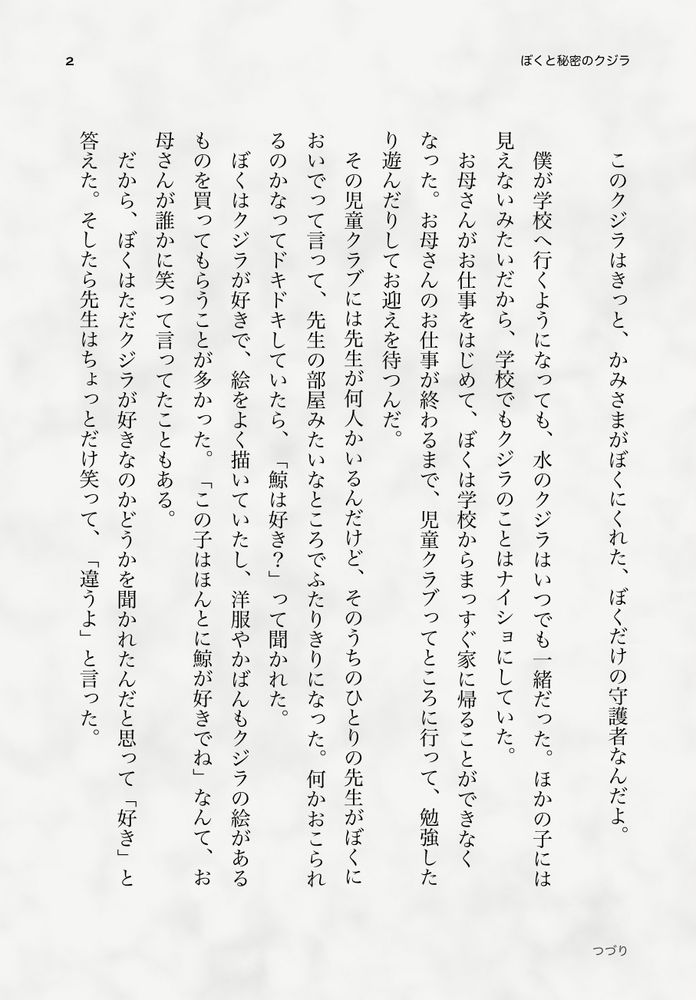 2
ぼくと秘密のクジラ
このクジラはきっと、かみさまがぼくにくれた、ぼくだけの守護者なんだよ。
僕が学校へ行くようになっても、水のクジラはいつでも一緒だった。ほかの子には
見えないみたいだから、学校でもクジラのことはナイショにしていた。
お母さんがお仕事をはじめて、ぼくは学校からまっすぐ家に帰ることができなく
なった。お母さんのお仕事が終わるまで、児童クラブってところに行って、勉強した
り遊んだりしてお迎えを待つんだ。
その児童クラブには先生が何人かいるんだけど、そのうちのひとりの先生がぼくに
おいでって言って、先生の部屋みたいなところでふたりきりになった。何かおこられ
るのかなってドキドキしていたら、「鯨は好き？」って聞かれた。
ぼくはクジラが好きで、絵をよく描いていたし、洋服やかばんもクジラの絵がある
ものを買ってもらうことが多かった。「この子はほんとに鯨が好きでね」なんて、お
母さんが誰かに笑って言ってたこともある。
だから、ぼくはただクジラが好きなのかどうかを聞かれたんだと思って「好き」と
答えた。そしたら先生はちょっとだけ笑って、「違うよ」と言った。
つづり